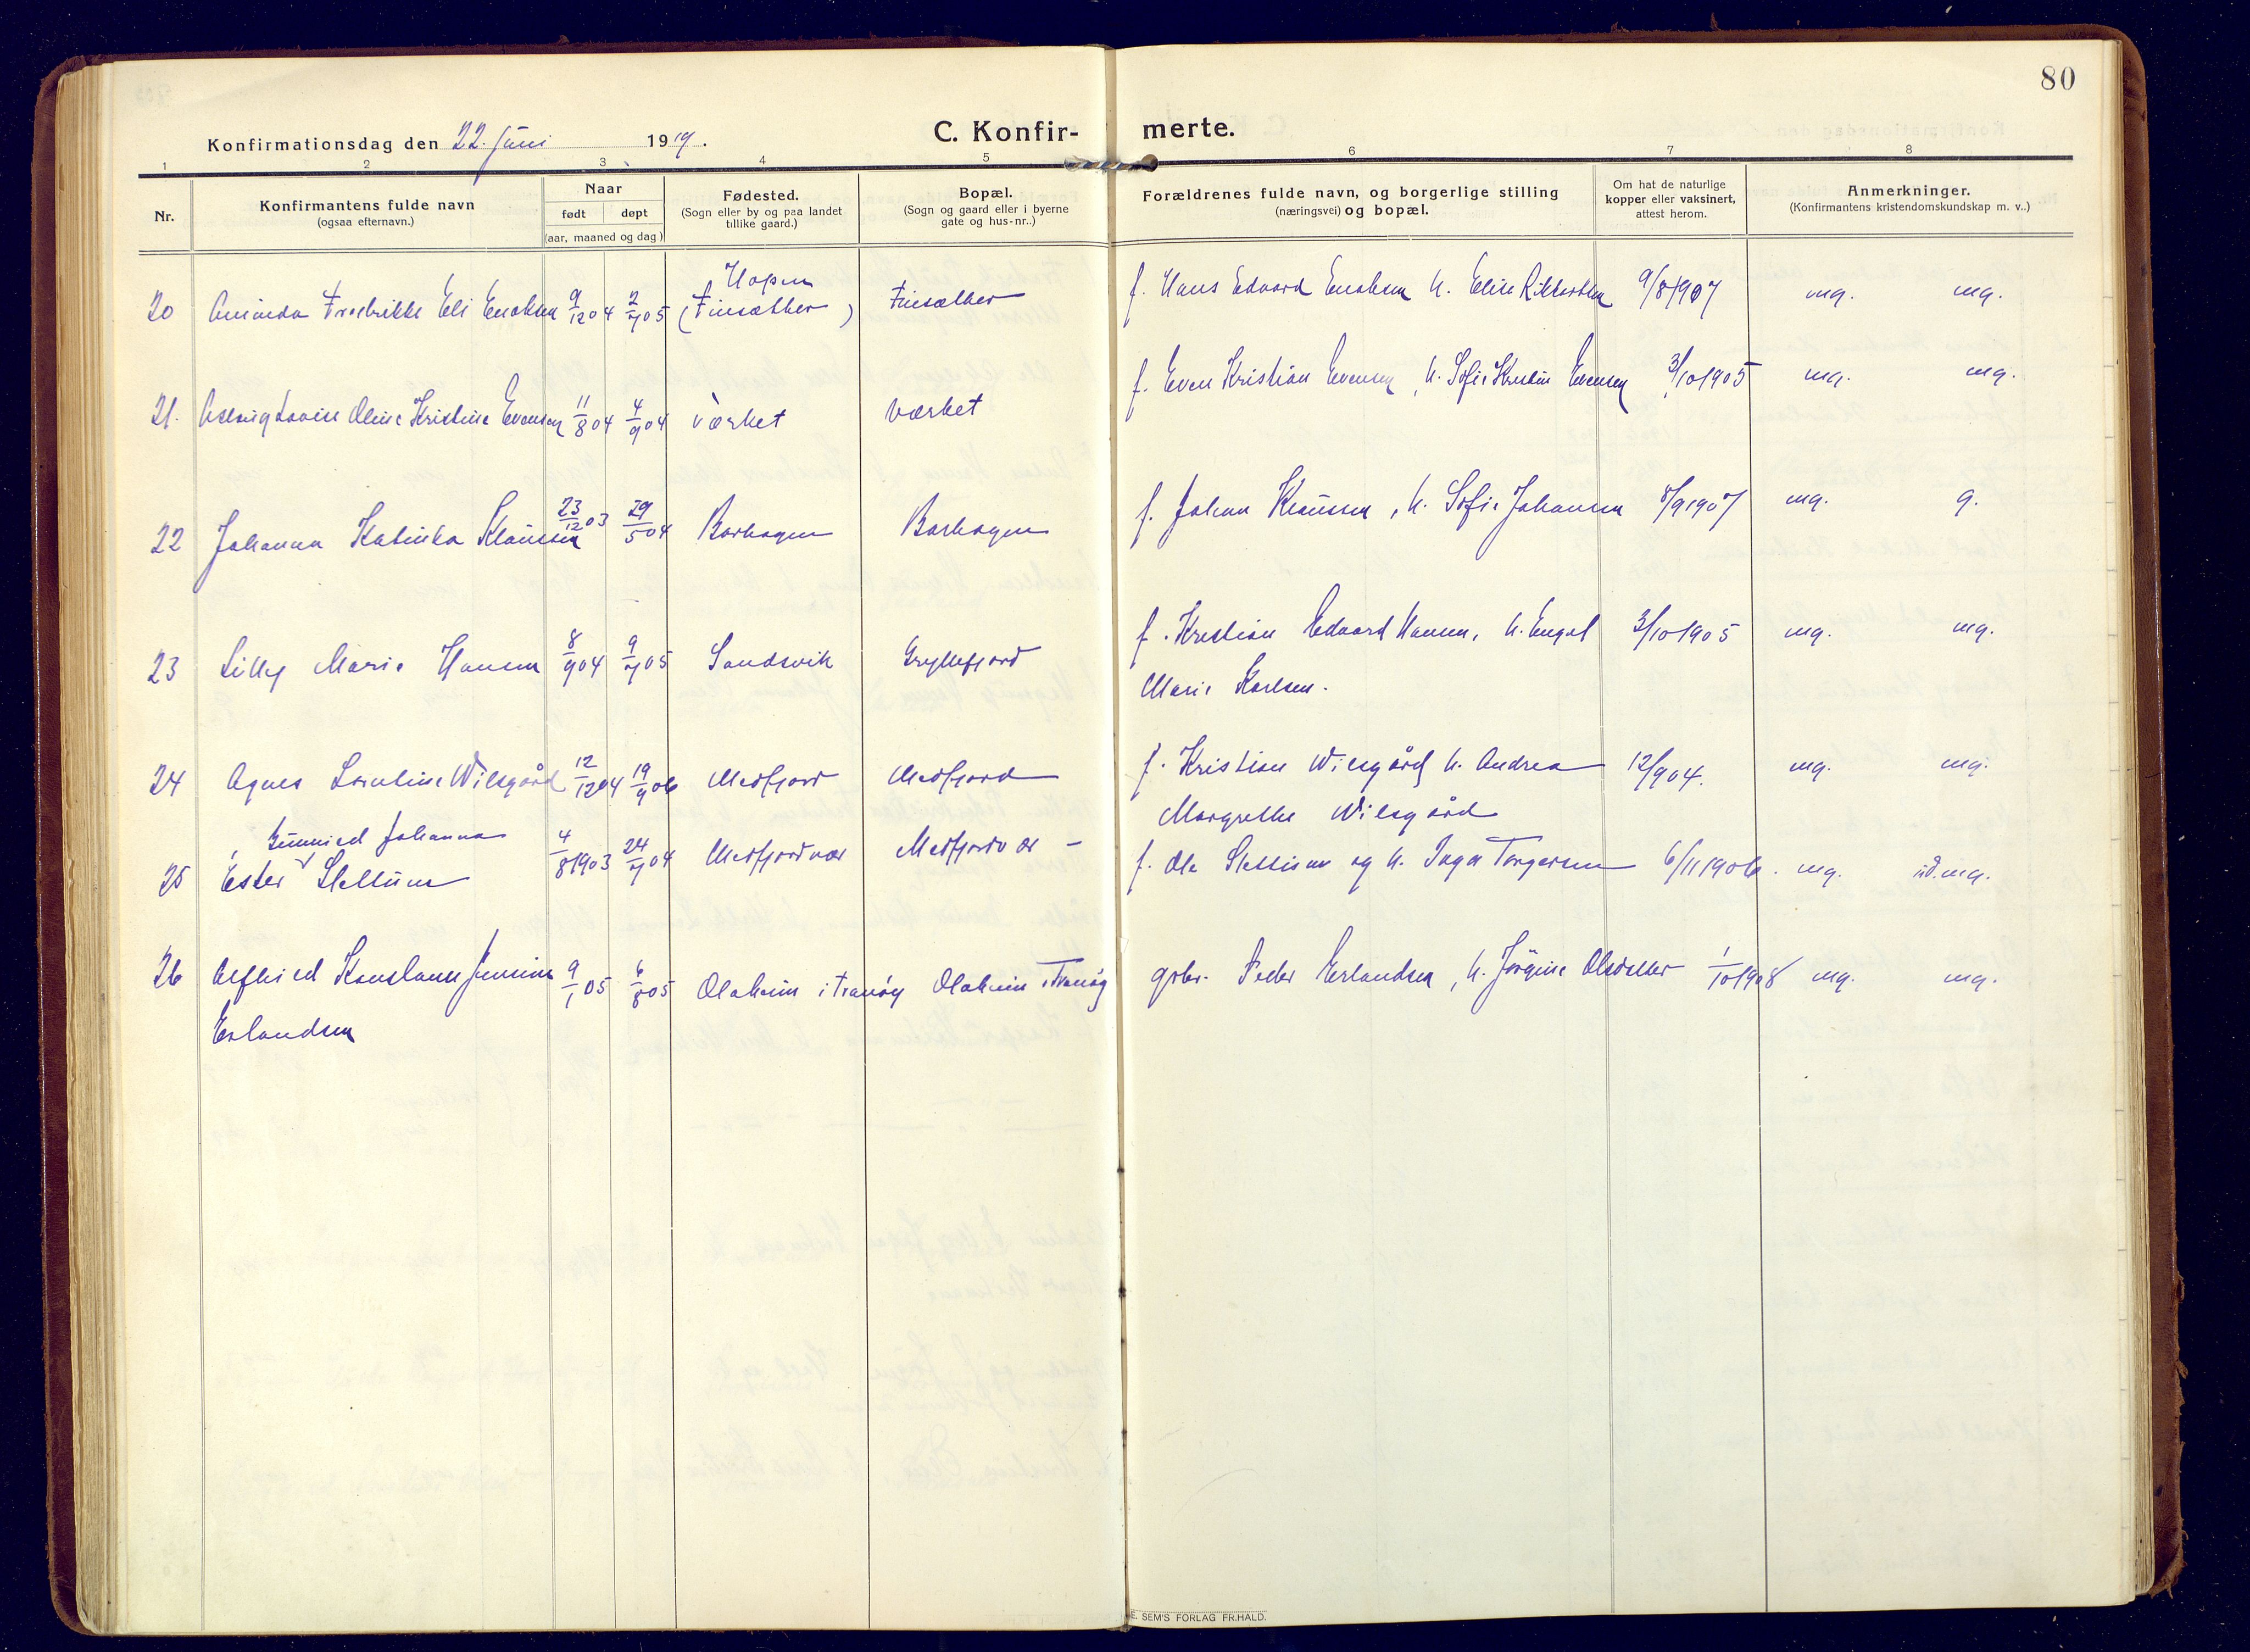 80
Konfirmationsdag den 22. juni 1919.
C. Konfirmerte.
1 2 3 4 5 6 7 8
Nr.
Konfirmantens fulde navn
(ogsaa efternavn.)
Naar
født døpt
(aar, maaned og dag)
Fødested.
(Sogn eller by og paa landet
tillike gaard.)
Bopæl.
(Sogn og gaard eller i byerne
gate og hus-nr..)
Forældrenes fulde navn, og borgerlige stilling
(næringsvei) og bopæl.
Om hat de naturlige
kopper eller vaksinert,
attest herom.
Anmerkninger.
(Konfirmantens kristendomskundskap m. v..)
Hopen
20 Fredrikke Eli Enoksen 9/12 04 2/7 05 (Finsæther) Finsæther f. Hans Edvard Enoksen h. Elise Rikkardsen 9/8 1907 mg. mg.
21. Aslaug Lovise Oline Kristine Evensen 11/8 04 4/9 04 Værket Værket f. Even Kristian Evensen, h. Sofie Kristin Evensen 3/10 1905 mg. mg.
22 Johanna Katinka Klausen 23/12 03 29/5 04 Barhagen Barhagen f. Johan Klausen, h. Sofie Johansen 8/9 1907 mg. g.
23 Lilly Marie Hansen 8/9 04 9/7 05 Sandsvik Gryllefjord f. Kristian Edvard Hansen, h. Engel 3/10 1905 mg. mg.
Marie Karlsen.
24 Agnes Wilsgård 12/12 04 19/9 06 Medfjord Medfjord f. Kristian Wilsgård h. Andrea 12/9 04. mg. mg.
Margrethe Wilsgård
Johanna
25 Ester Slettum 4/8 1903 24/7 04 Medfjordvær Medfjordvær - f. Ole og h. Inga Torgersen 6/11 1906. mg. ud. mg.
26 Konstanse Jensine 9/1 05 6/8 05 Olaheim i Tranöy Olaheim i Tranöy gbr. Peder Erlandsen, h. Jörgine Olsdatter 1/10 1908 mg. mg.
Erlandsen
E. SEM'S FORLAG FR.HALD.